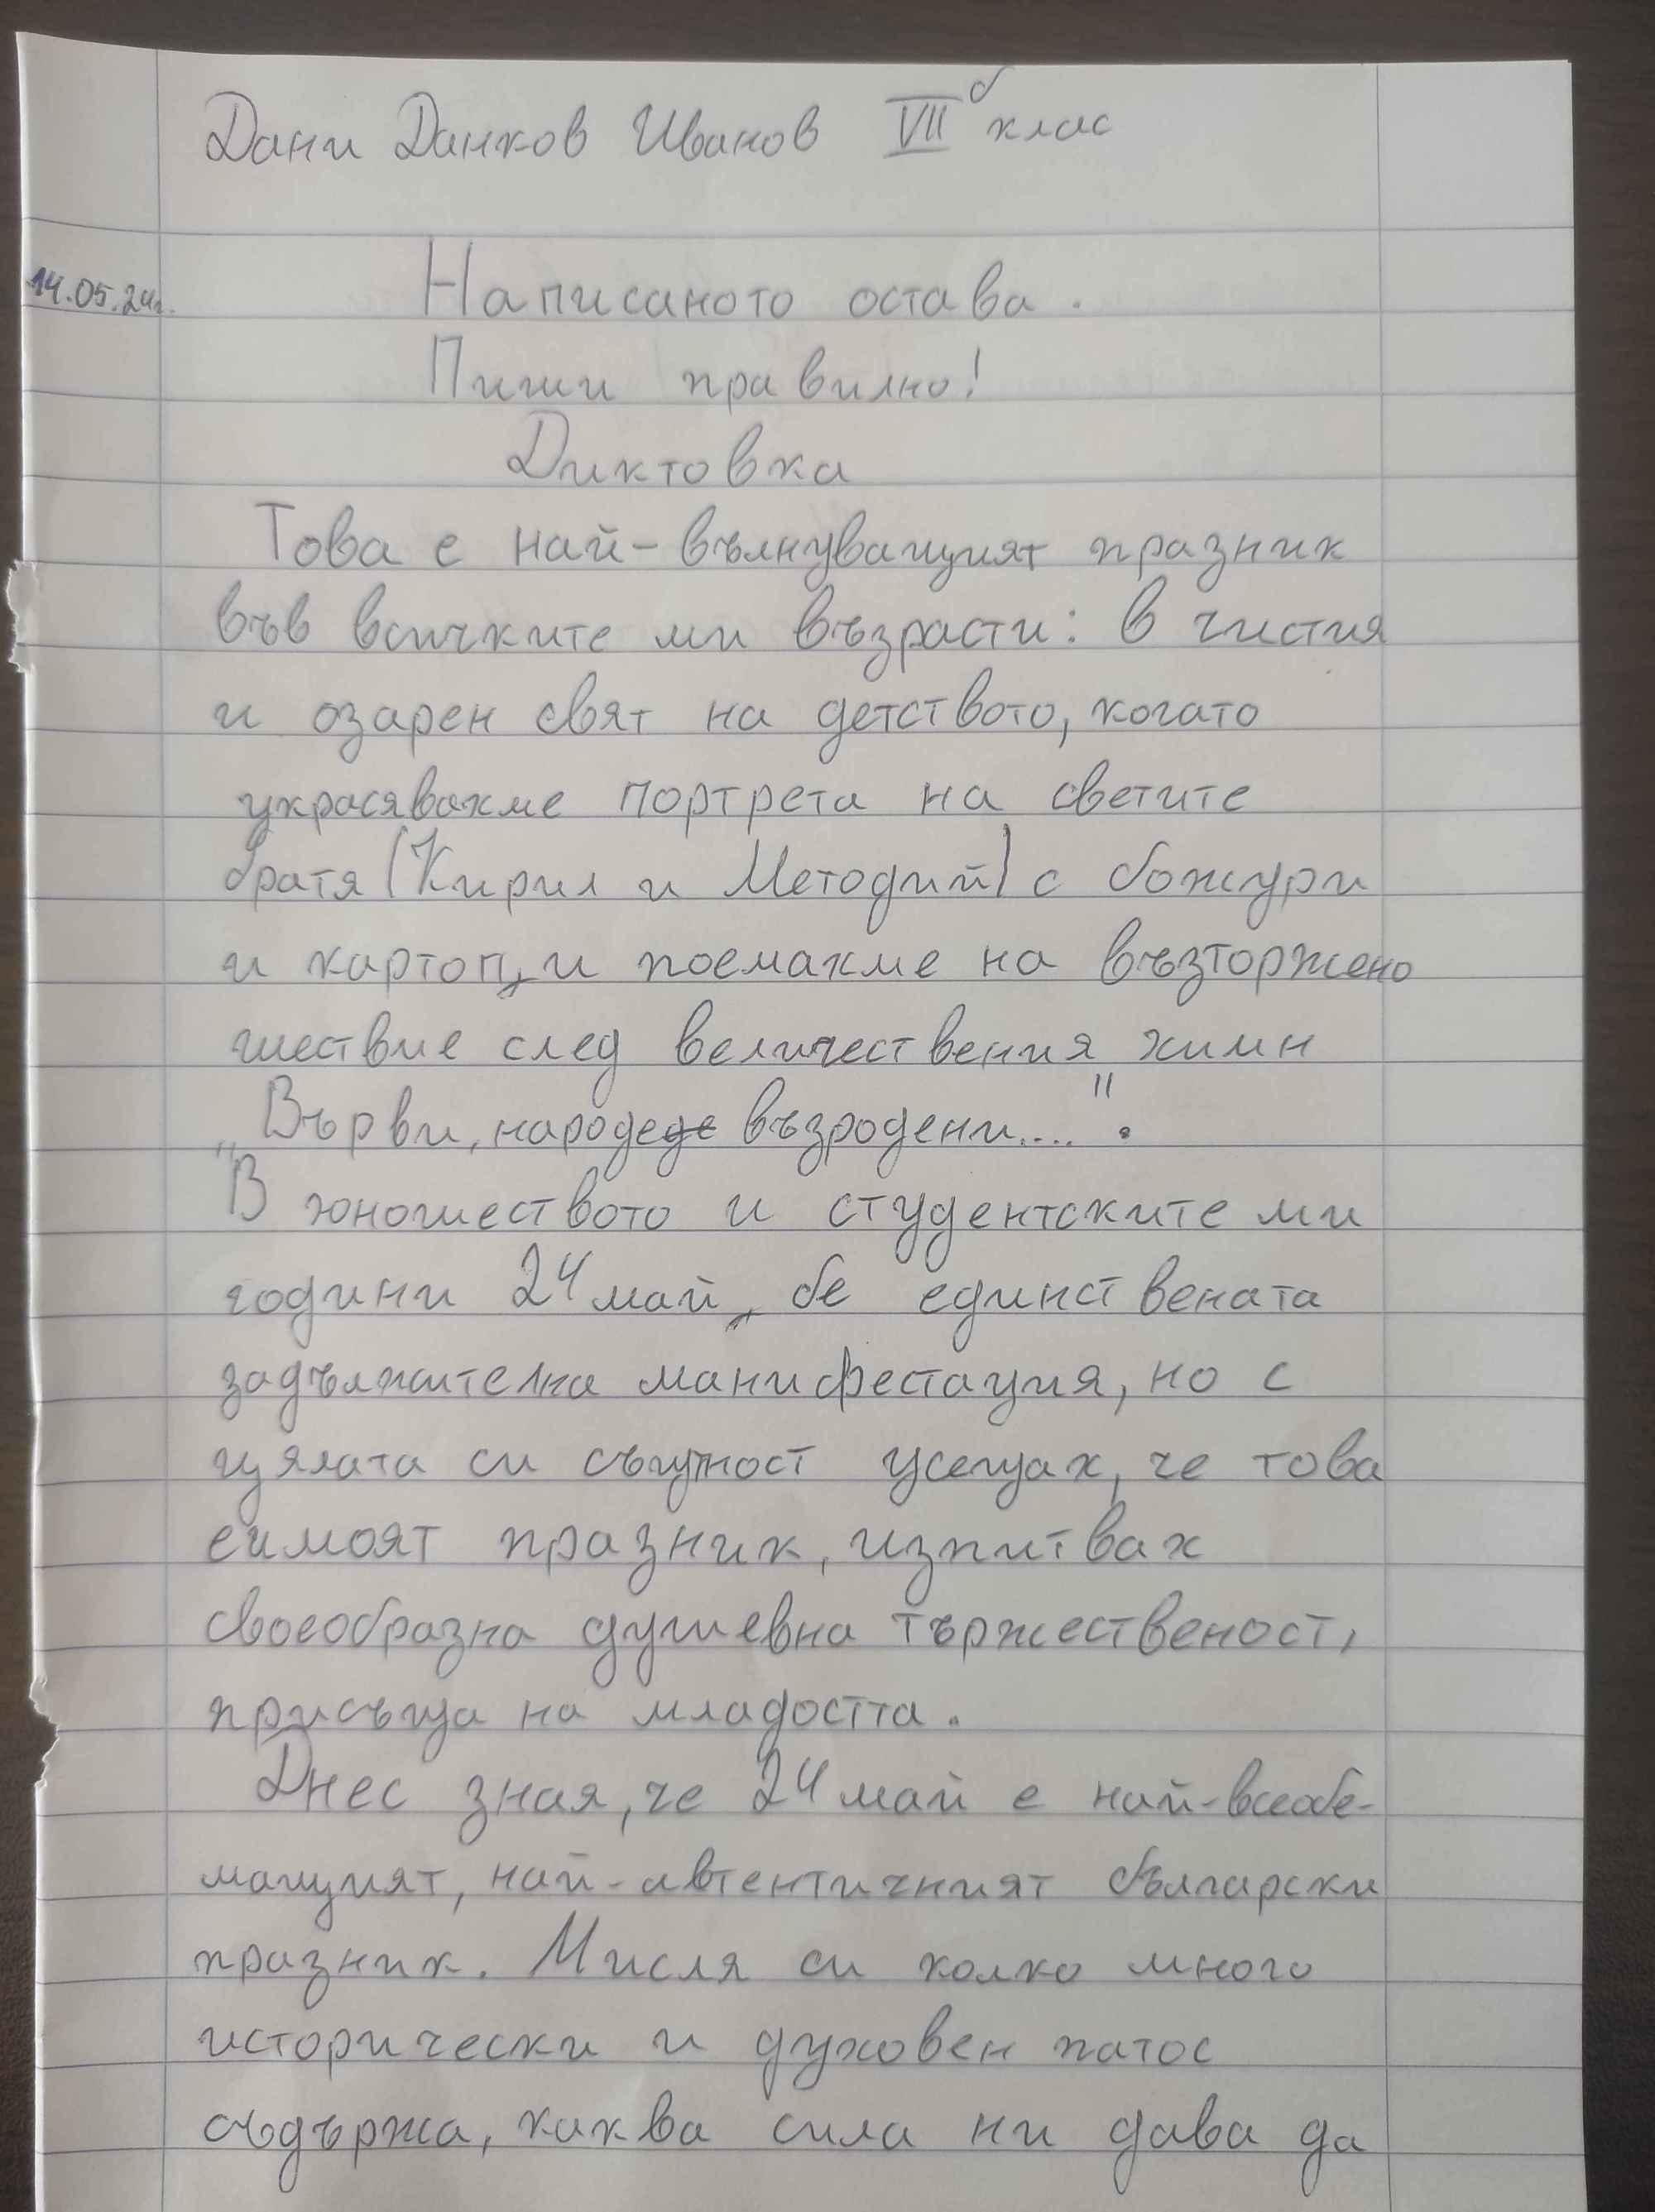 Дани Данков Иванов VII б клас
14.05.24г.
Написаното остава.
Пиши правилно!
Диктовка
Това е най-вълнуващият празник
във всичките ми възрасти: в чистия
и озарен свят на детството, когато
украсявахме портрета на светите
братя (Кирил и Методий) с божури
и картоп, и поемахме на възторжено
шествие след величествения химн
„Върви, народе възродени....".
В юношеството и студентските ми
години 24 май, бе единствената
задължителна манифестация, но с
цялата си същност усещах, че това
е и моят празник, изпитвах
своеобразна душевна тържественост,
присъща на младостта.
Днес зная, че 24 май е най-всеобе-
мащият, най-автентичният български
празник. Мисля си колко много
исторически и духовен патос
съдържа, каква сила ни дава да